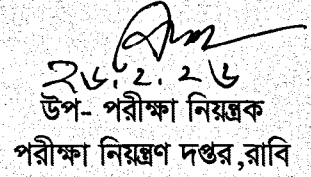 ২৬.২.২৬
উপ- পরীক্ষা নিয়ন্ত্রক
পরীক্ষা নিয়ন্ত্রণ দপ্তর,রাবি